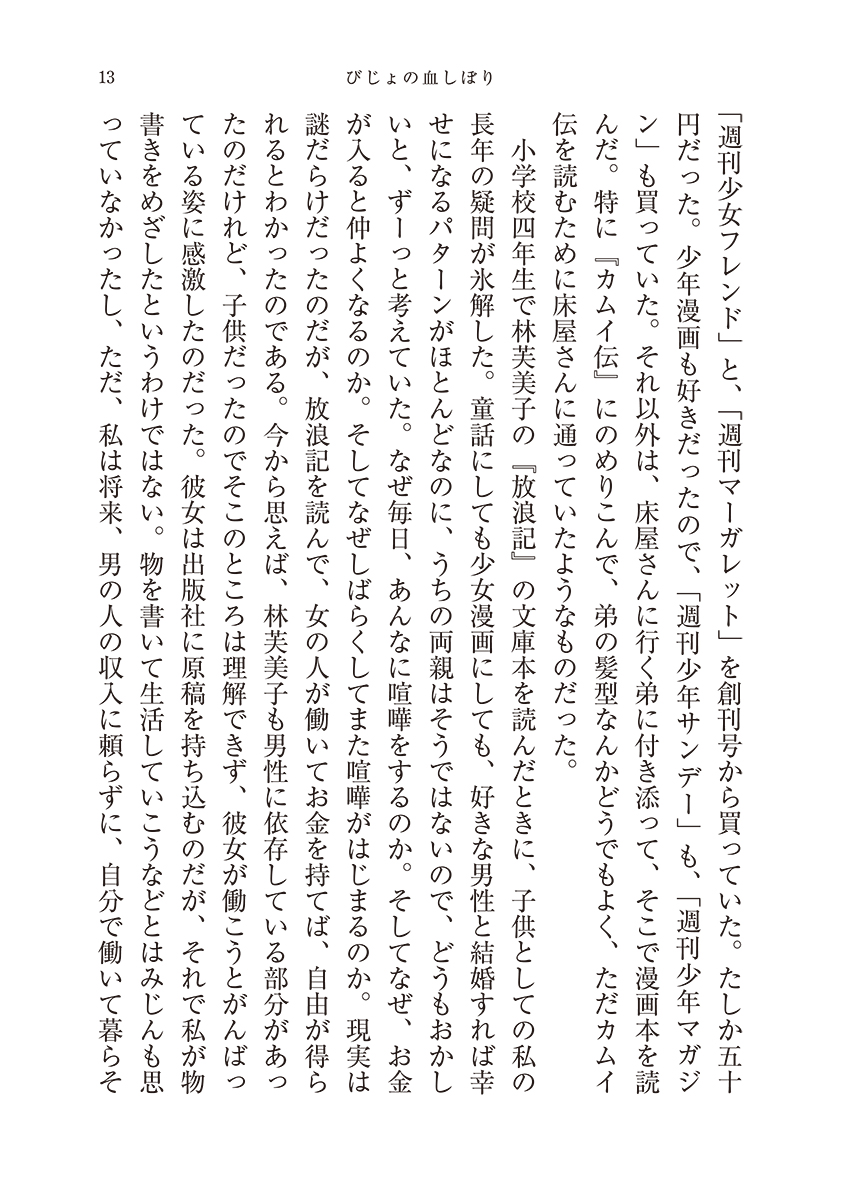 13
びじょの血しぼり
「週刊少女フレンド」と、「週刊マーガレット」を創刊号から買っていた。たしか五十
円だった。少年漫画も好きだったので、「週刊少年サンデー」も、「週刊少年マガジ
ン」も買っていた。それ以外は、床屋さんに行く弟に付き添って、そこで漫画本を読
んだ。特に『カムイ伝』にのめりこんで、弟の髪型なんかどうでもよく、ただカムイ
伝を読むために床屋さんに通っていたようなものだった。
小学校四年生で林芙美子の『放浪記』の文庫本を読んだときに、子供としての私の
長年の疑問が氷解した。童話にしても少女漫画にしても、好きな男性と結婚すれば幸
せになるパターンがほとんどなのに、うちの両親はそうではないので、どうもおかし
いと、ずーっと考えていた。なぜ毎日、あんなに喧嘩をするのか。そしてなぜ、お金
が入ると仲よくなるのか。そしてなぜしばらくしてまた喧嘩がはじまるのか。現実は
謎だらけだったのだが、放浪記を読んで、女の人が働いてお金を持てば、自由が得ら
れるとわかったのである。今から思えば、林芙美子も男性に依存している部分があっ
たのだけれど、子供だったのでそこのところは理解できず、彼女が働こうとがんばっ
ている姿に感激したのだった。彼女は出版社に原稿を持ち込むのだが、それで私が物
書きをめざしたというわけではない。物を書いて生活していこうなどとはみじんも思
っていなかったし、ただ、私は将来、男の人の収入に頼らずに、自分で働いて暮らそ